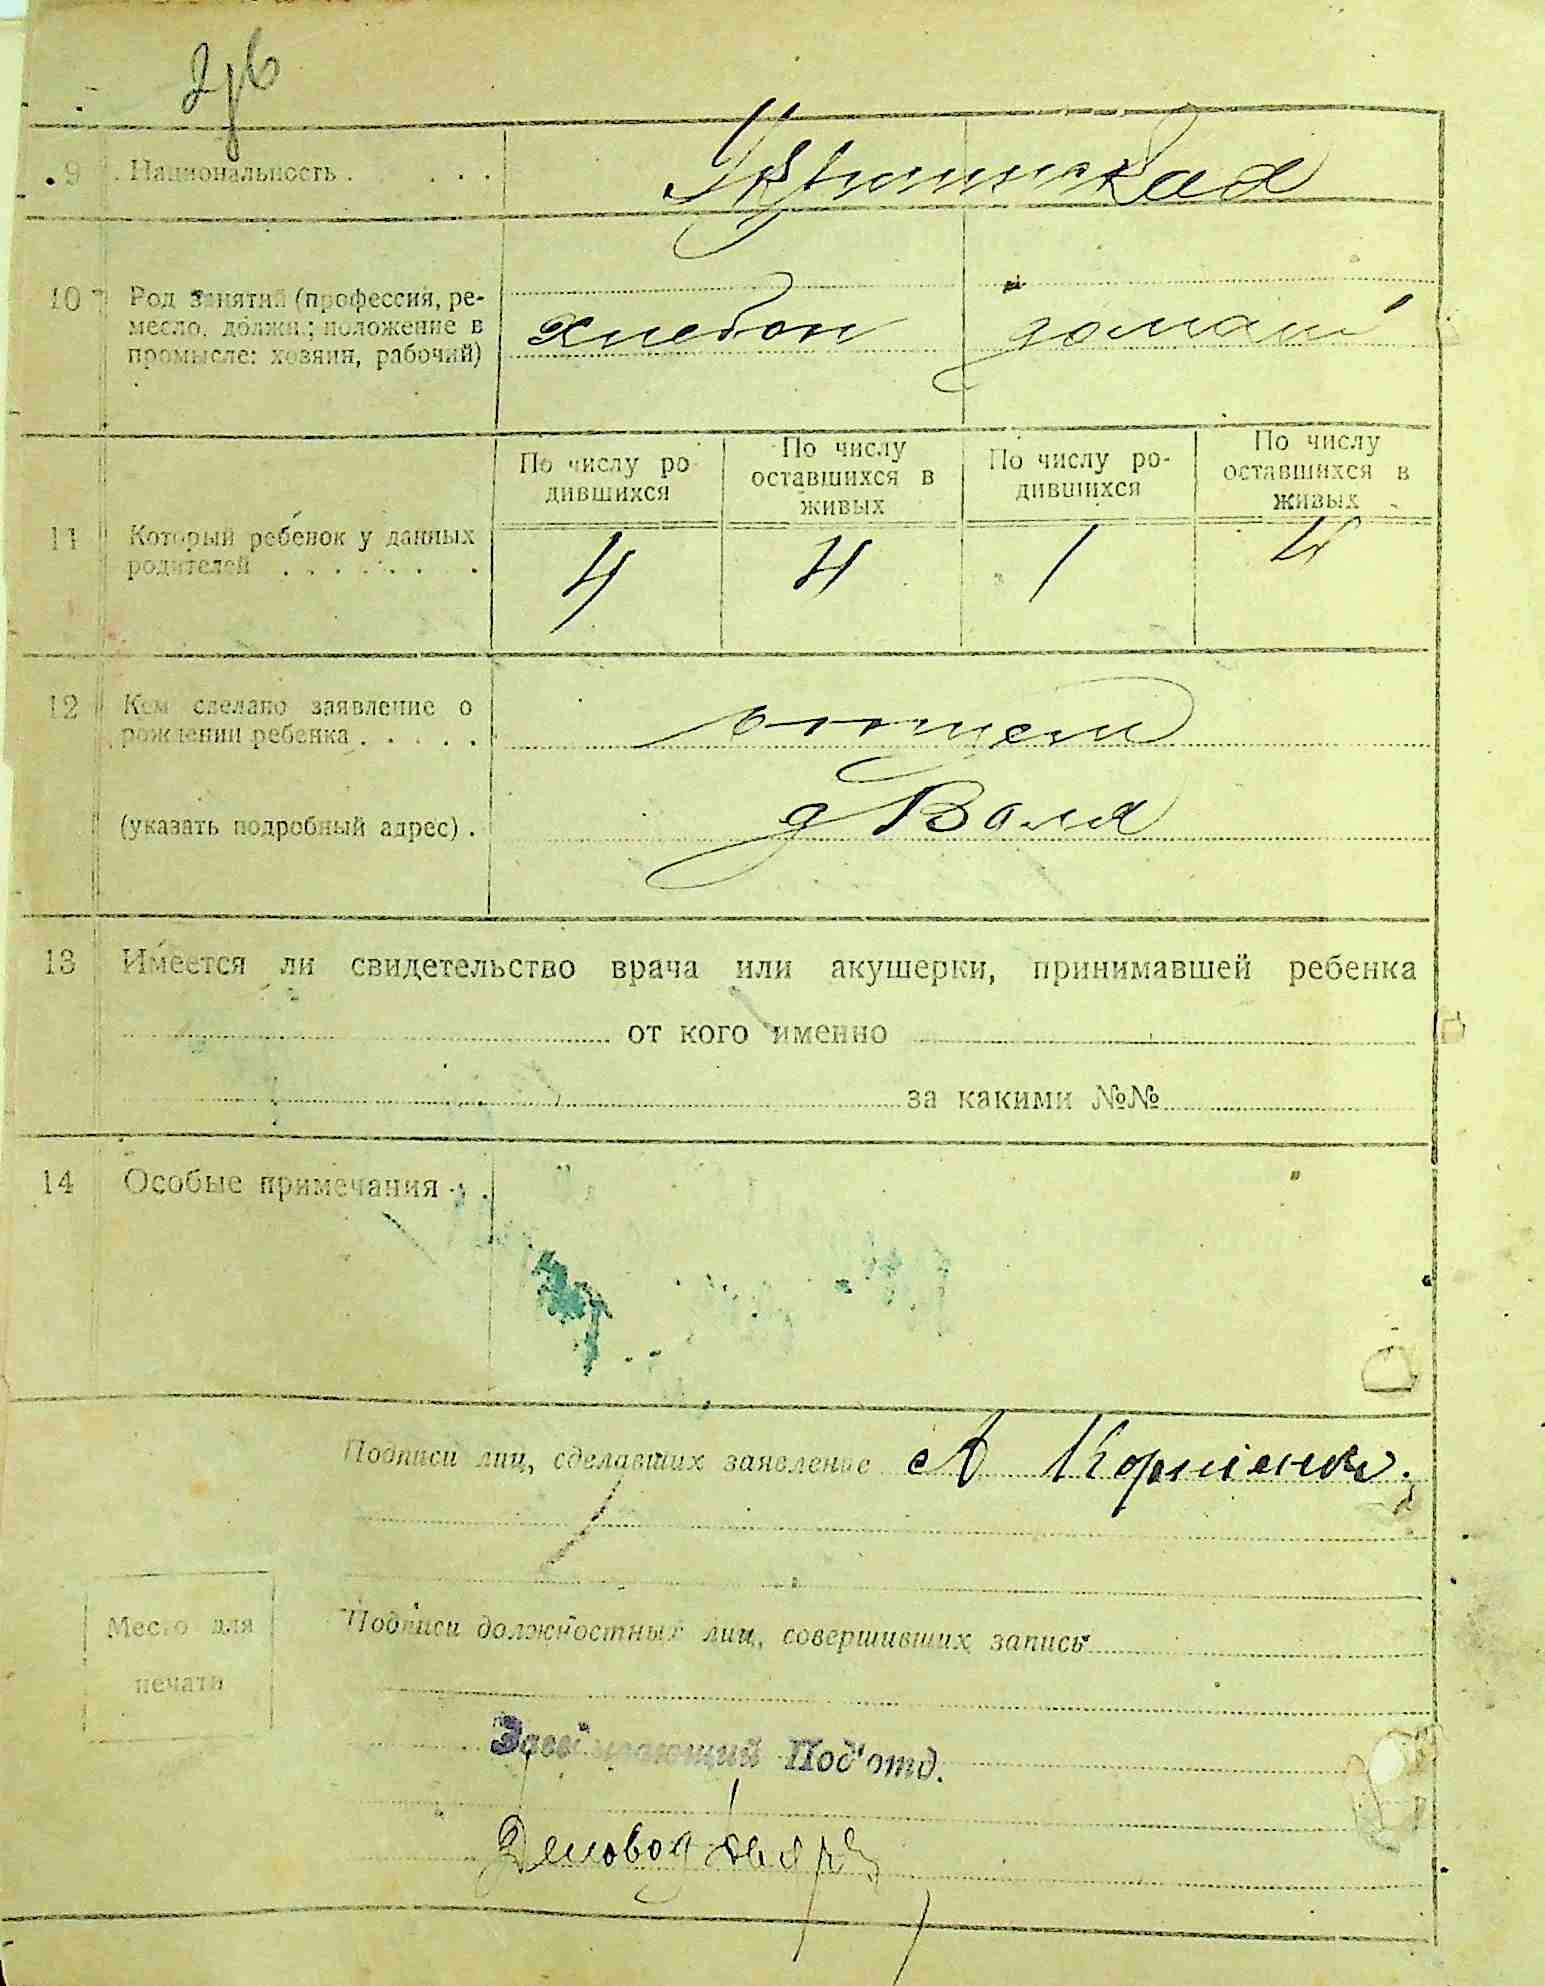 9 Национальность . . . . Украинская
10 Род занятий (профессия, ре-
месло, должн.; положение в
промысле: хозяин, рабочий)
хлебоп домаш
По числу ро-
дившихся
По числу
оставшихся в
живых
По числу ро-
дившихся
По числу
оставшихся в
живых
11 Который ребенок у данных
родителей . . . . . . .
4 4 1 4
12 Кем сделано заявление о
рождении ребенка . . . . . отцем
(указать подробный адрес) . д Воля
13 Имеется ли свидетельство врача или акушерки, принимавшей ребенка
от кого именно
за какими №№
14 Особые примечания . .
Подписи лиц, сделавших заявление А Корниенко.
Подписи должностных лиц, совершивших запись
Место для
печати
Заведывающий Под'отд.
Деловод